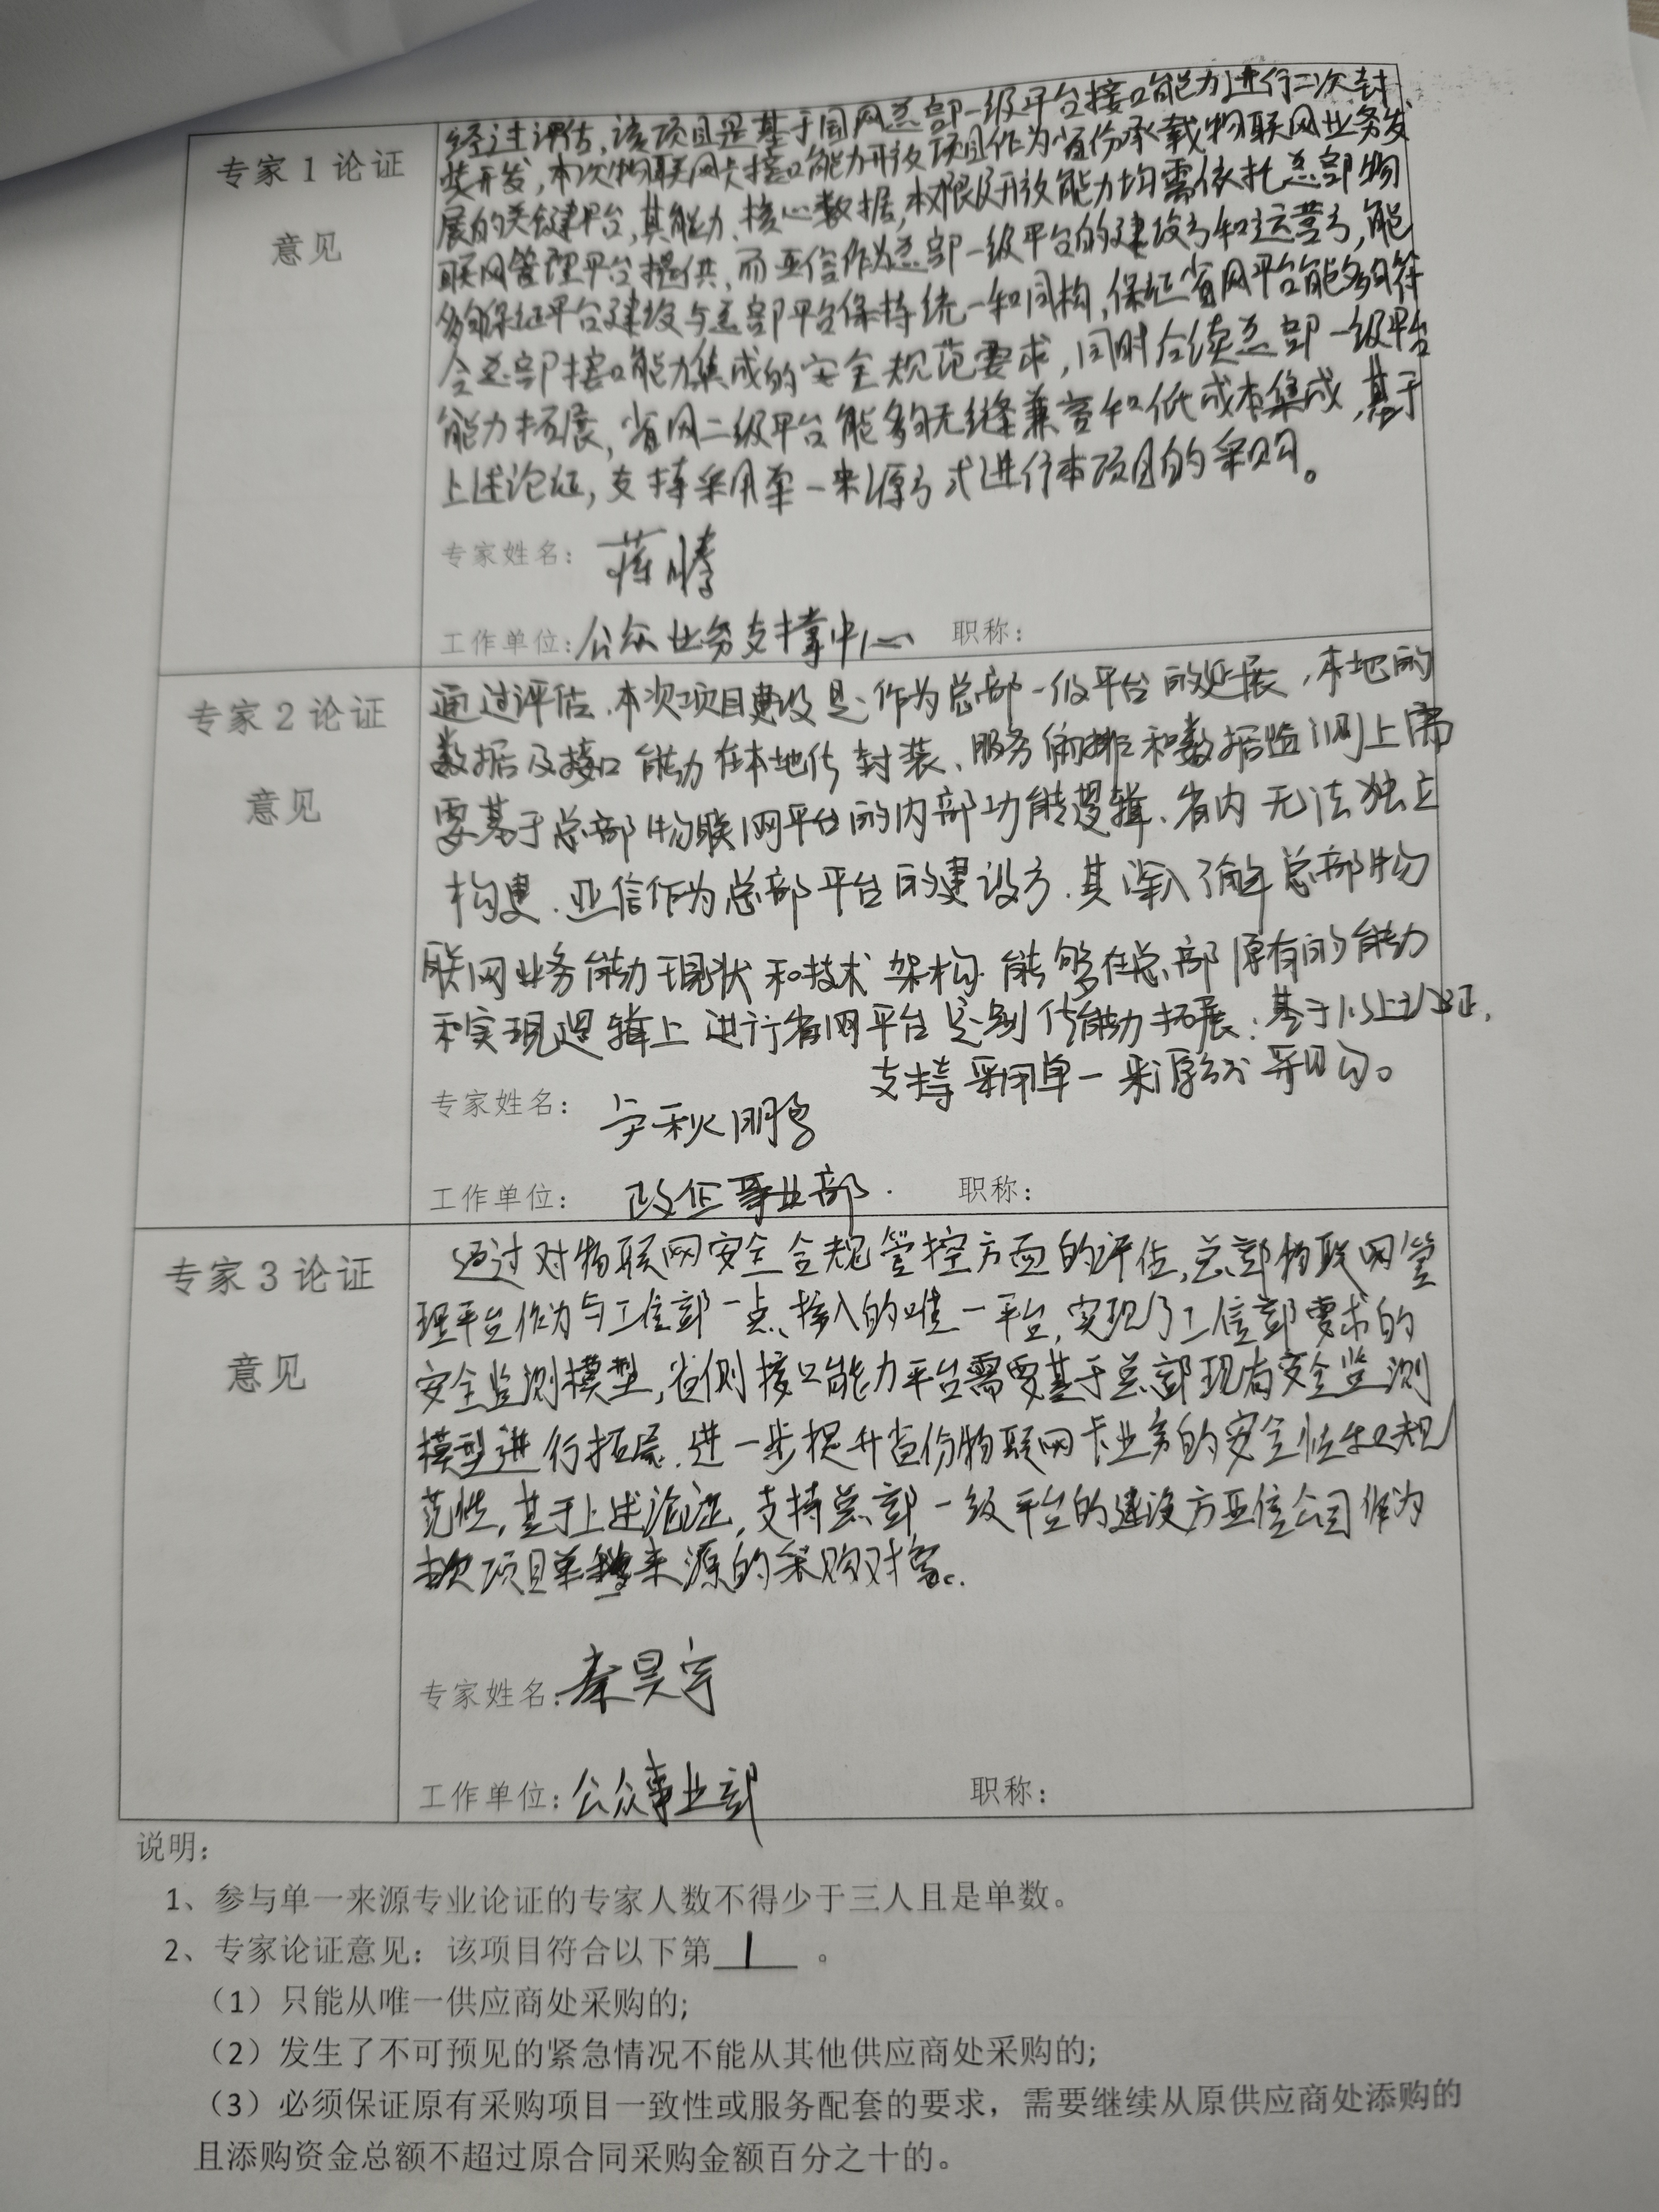 专家1论证
意见
经过评估，该项目是基于国网总部一级平台接口能力进行二次封
装开发，本次物联网卡接口能力开放项目作为省份承载物联网业务发
展的关键平台，其能力、核心数据，权限及开放能力均需依托总部物
联网管理平台提供，而亚信作为总部一级平台的建设方和运营方，能
够保证平台建设与总部平台保持统一和同构，保证省网平台能够符
合总部接口能力集成的安全规范要求，同时后续总部一级平台
能力拓展，省网二级平台能够无缝兼容和低成本集成，基于
上述论证，支持采用单一来源方式进行本项目的采购。
专家姓名：
工作单位：公众业务支撑中心 职称：
专家2论证
意见
通过评估、本次项目建设是作为总部一级平台的延展，本地的
数据及接口能力在本地化封装、服务编排和数据监测上需
要基于总部物联网平台的内部功能逻辑、省内无法独立
构建、亚信作为总部平台的建设方、其深入了解总部物
联网业务能力现状和技术架构 能够在总部原有的能力
和实现逻辑上 进行省网平台定制化能力拓展：基于以上论证，
支持采用单一来源方式采购。
专家姓名：
工作单位：政企事业部. 职称：
专家3论证
意见
通过对物联网安全合规管控方面的评估，总部物联网管
理平台作为与工信部一点接入的唯一平台，实现了工信部要求的
安全监测模型，省侧接口能力平台需要基于总部现有安全监测
模型进行拓展，进一步提升省份物联网卡业务的安全性和规
范性，基于上述论证，支持总部一级平台的建设方亚信公司作为
本次项目单来源的采购对象。
专家姓名：秦昊宇
工作单位：公众事业部 职称：
说明：
1、参与单一来源专业论证的专家人数不得少于三人且是单数。
2、专家论证意见：该项目符合以下第 1 。
（1）只能从唯一供应商处采购的;
（2）发生了不可预见的紧急情况不能从其他供应商处采购的;
（3）必须保证原有采购项目一致性或服务配套的要求，需要继续从原供应商处添购的
且添购资金总额不超过原合同采购金额百分之十的。